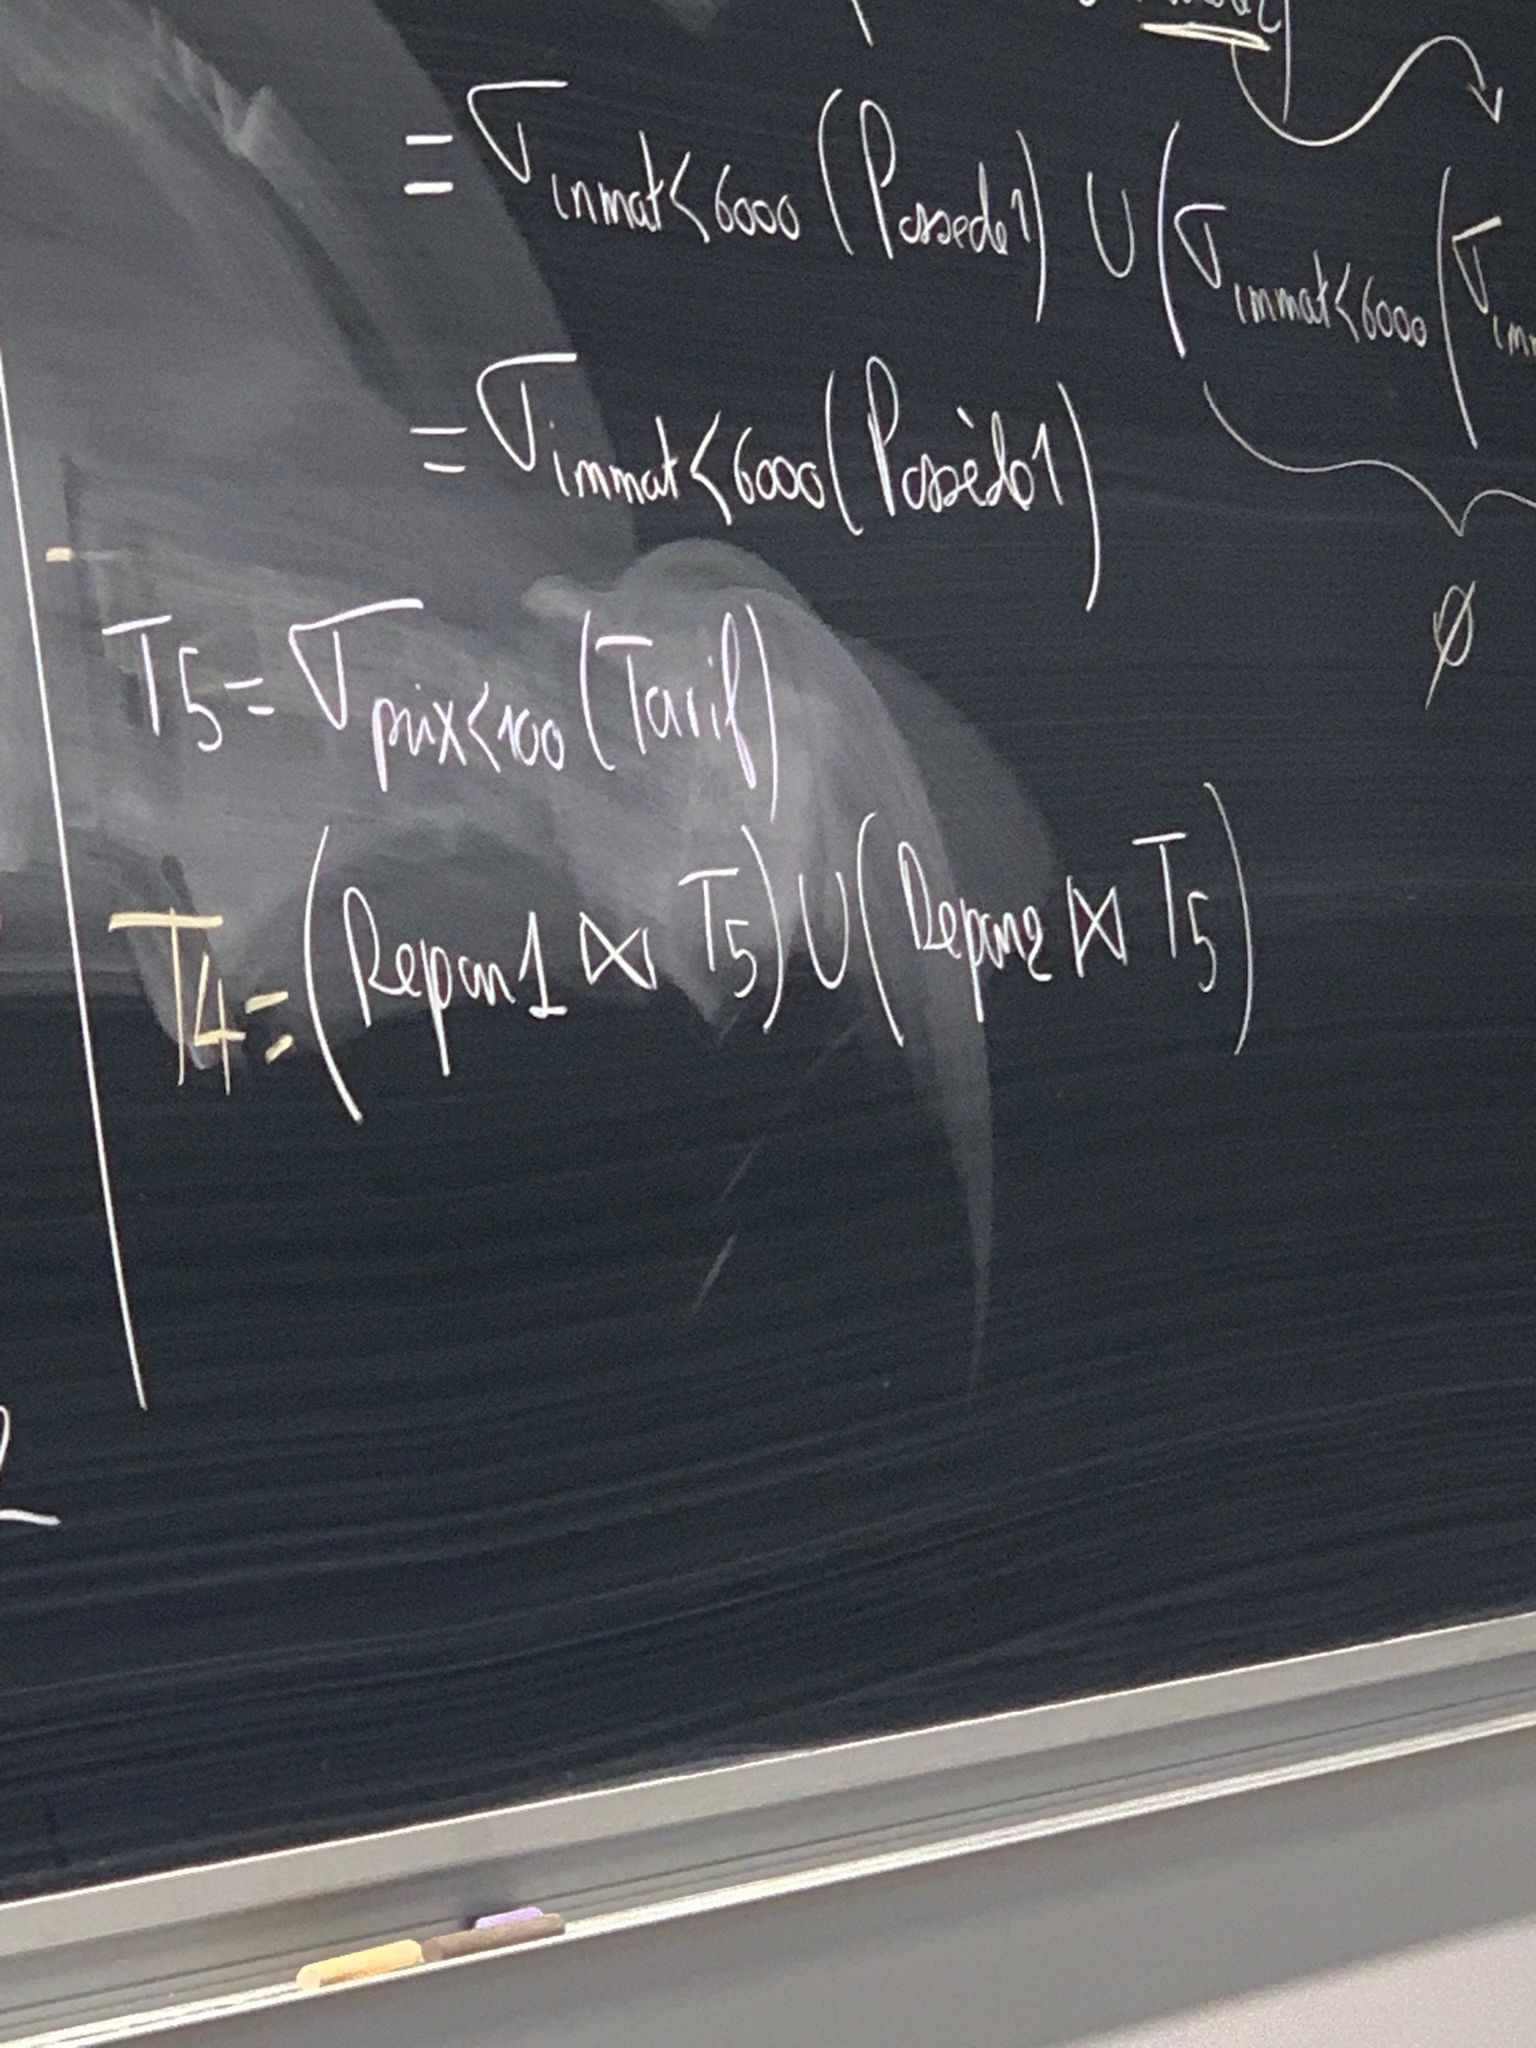 = σ immat<6000 (Possède1) ∪ (σ immat<6000 (σ
= σ immat<6000 (Possède1)
∅
T5 = σ prix<100 (Tarif)
T4 = (Repar1 ⋈ T5) ∪ (Repar2 ⋈ T5)